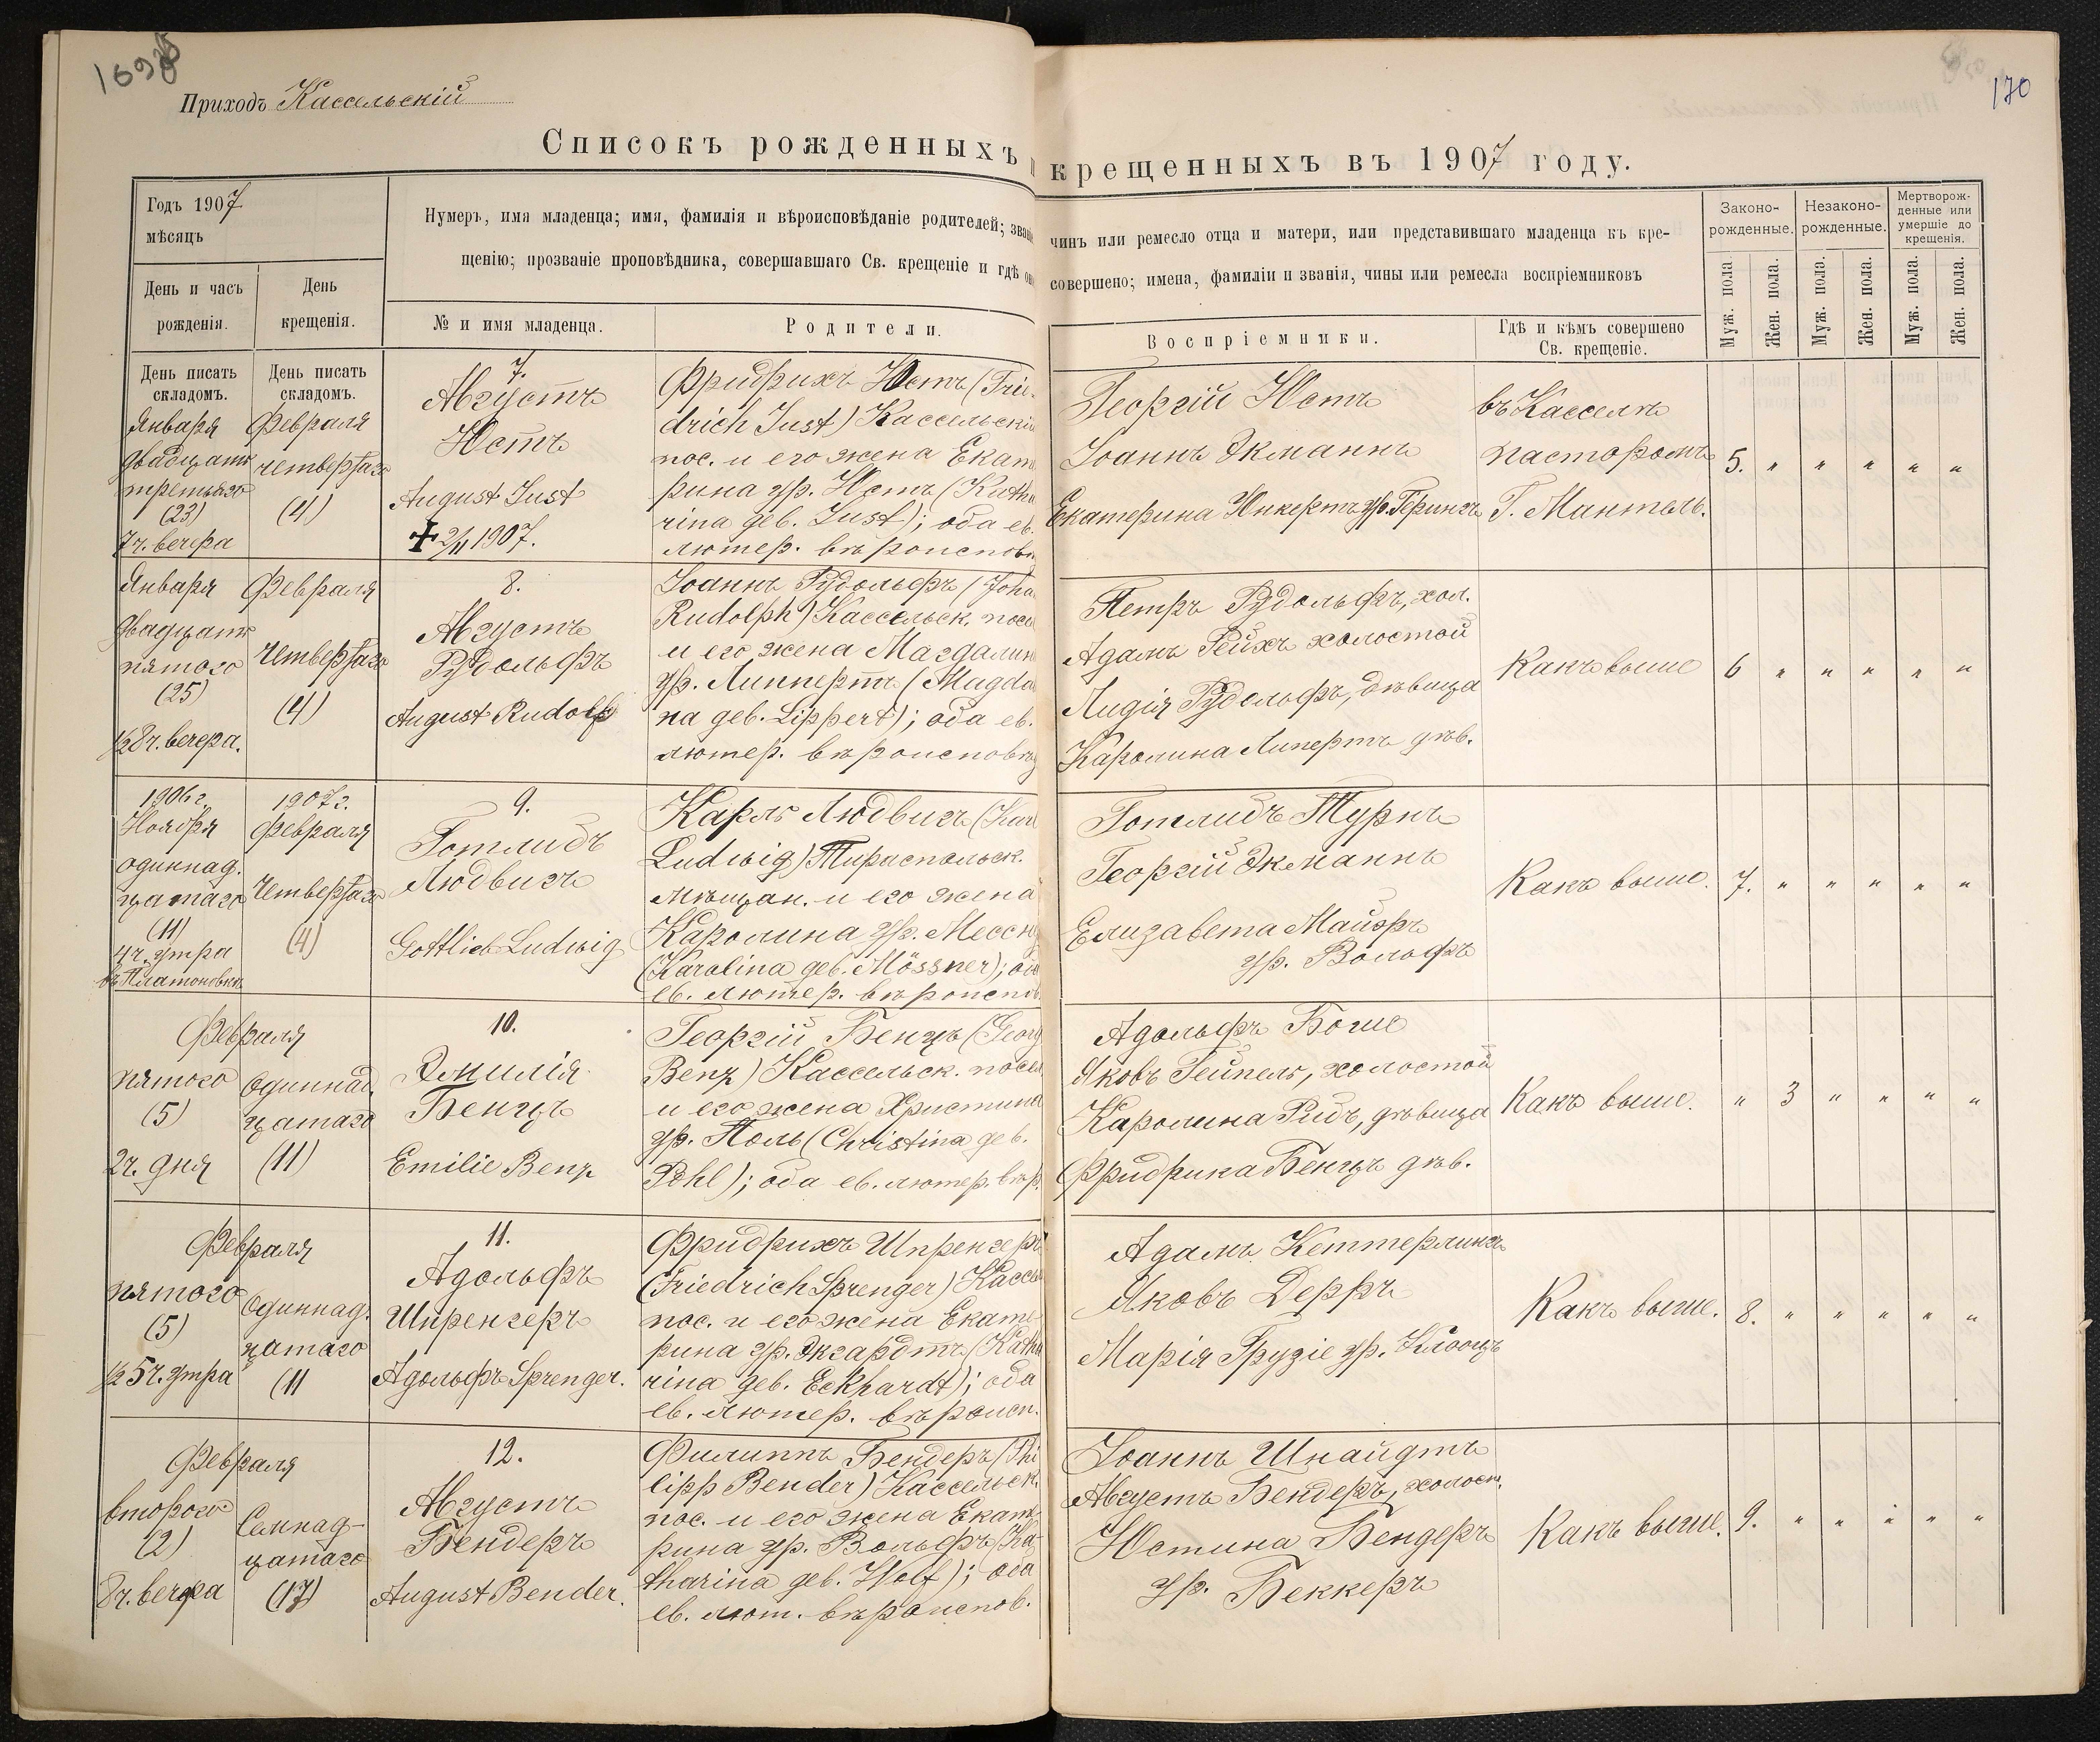 Приходъ Кассельскій
170
Списокъ рожденныхъ и крещенныхъ въ 1907 году.
Годъ 1907
мѣсяцъ
День и часъ
рожденія.
День
крещенія.
Нумеръ, имя младенца; имя, фамилія и вѣроисповѣданіе родителей;
чинъ или ремесло отца и матери, или представившаго младенца къ кре-
щенію; прозваніе проповѣдника, совершавшаго Св. крещеніе и гдѣ
совершено; имена, фамиліи и званія, чины или ремесла воспріемниковъ
№ и имя младенца.
Родители.
Воспріемники.
Гдѣ и кѣмъ совершено
Св. крещеніе.
Законо-
рожденные.
Незаконо-
рожденные.
Мертворож-
денные или
умершіе до
крещенія.
Муж. пола
Жен. пола.
Муж. пола.
Жен. пола.
Муж. пола.
Жен. пола.
День писать
складомъ.
День писать
складомъ.
Января
двадцать
третьяго
(23)
7 ч. вечера
Февраля
четвертаго
(4)
7.
Августъ
Юстъ
August Just
✝ 2/II 1907.
Фридрихъ Юстъ (Frie-
drich Just) Кассельскій
пос. и его жена Екате
рина ур. Юстъ (Katha
rina geb. Just); оба ев.
лютер. вѣроисповѣ
Георгій Юстъ
Іоаннъ Экманнъ
Екатерина Юнкертъ ур. Герингъ
въ Касселѣ
пасторомъ
Г. Мантель.
5. " " " " "
Января
двадцать
пятаго
(25)
½8 ч. вечера.
Февраля
Четвертаго
(4)
8.
Августъ
Рудольфъ
August Rudolf
Іоаннъ Рудольфъ (Joha
Rudolph) Кассельск. посе
и его жена Магдалин
ур. Липпертъ (Magda
na geb. Lippert); оба ев.
лютер. вѣроисповѣд
Петръ Рудольфъ, хол.
Адамъ Рейхъ холостой
Лидія Рудольфъ, дѣвица
Каролина Липертъ дѣв.
Какъ выше
6 " " " " "
1906 г.
Ноября
одиннад-
цатаго
(11)
4 ч. утра
въ Платоновкѣ
1907 г.
Февраля
Четвертаго
(4)
9.
Готлибъ
Людвигъ
Gottlieb Ludwig
Карлъ Людвигъ (Karl
Ludwig) Тираспольск.
мѣщан. и его жена
Каролина ур. Мессн
(Karolina geb. Mössner); оба
ев. лютер. вѣроиспов.
Готлибъ Турнъ
Георгій Экманнъ
Елизавета Майеръ
ур. Вольфъ
Какъ выше.
7. " " " " "
Февраля
пятаго
(5)
2 ч. дня
Одиннад-
цатаго
(11)
10.
Эмилія
Бенцъ
Emilie Benz
Георгій Бенцъ (Georg
Benz) Кассельск. посел
и его жена Христина
ур. Поль (Christina geb.
Pohl); оба ев. лютер. вѣр.
Адольфъ Боше
Яковъ Гейпель, холостой
Каролина Ридъ, дѣвица
Фридрика Бенцъ дѣв.
Какъ выше.
" 3 " " " "
Февраля
пятаго
(5)
½5 ч. утра
Одиннад-
цатаго
(11
11.
Адольфъ
Шпренгеръ
Адольфъ Sprenger.
Фридрихъ Шпренгеръ
(Friedrich Sprenger) Кассел
пос. и его жена Екате-
рина ур. Экгардтъ (Katha
rina geb. Eckhardt); оба
ев. лютер. вѣроисп.
Адамъ Кеттерлингъ
Яковъ Дерръ
Марія Грузіе ур. Клоцъ
Какъ выше.
8. " " " " "
Февраля
второго
(2)
8 ч. вечера
Семнад-
цатаго
(17)
12.
Августъ
Бендеръ
August Bender.
Филиппъ Бендеръ (Phi
lipp Bender) Кассельск.
пос. и его жена Екате
рина ур. Вольфъ (Ka-
tharina geb. Wolf); оба
ев. лют. вѣроиспов.
Іоаннъ Шнайдтъ
Августъ Бендеръ, холост.
Юстина Бендеръ
ур. Беккеръ
Какъ выше.
9. " " " " "